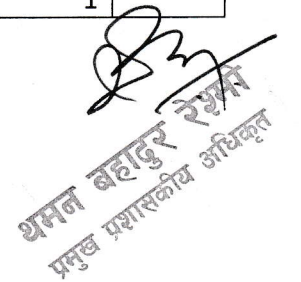 1
थमन बहादुर रेश्मी
प्रमुख प्रशासकीय अधिकृत